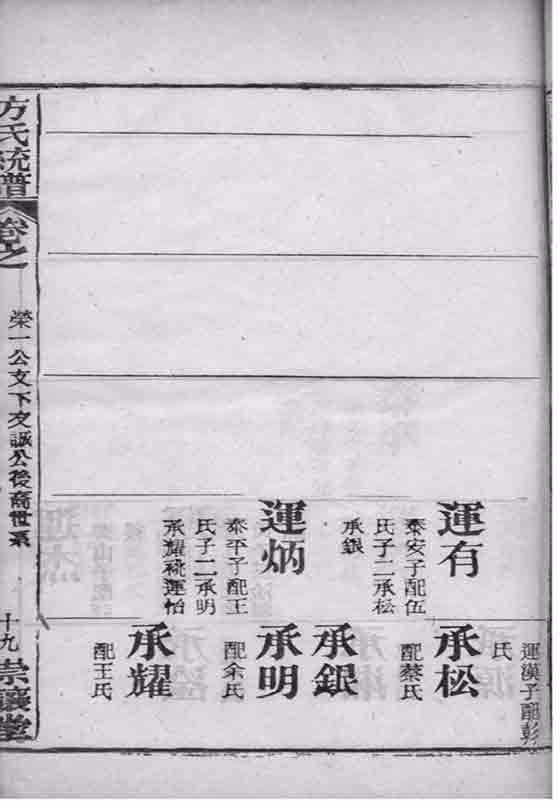 運有
泰安子配伍
氏子二承松
承銀
運炳
泰平子配王
氏子二承明
承耀祧運怡
運漢子配彭
氏
承松
配蔡氏
承銀
承明
配余氏
承耀
配王氏
方氏統譜
卷之
榮一公文下友誠公後裔世系
十九
崇讓堂